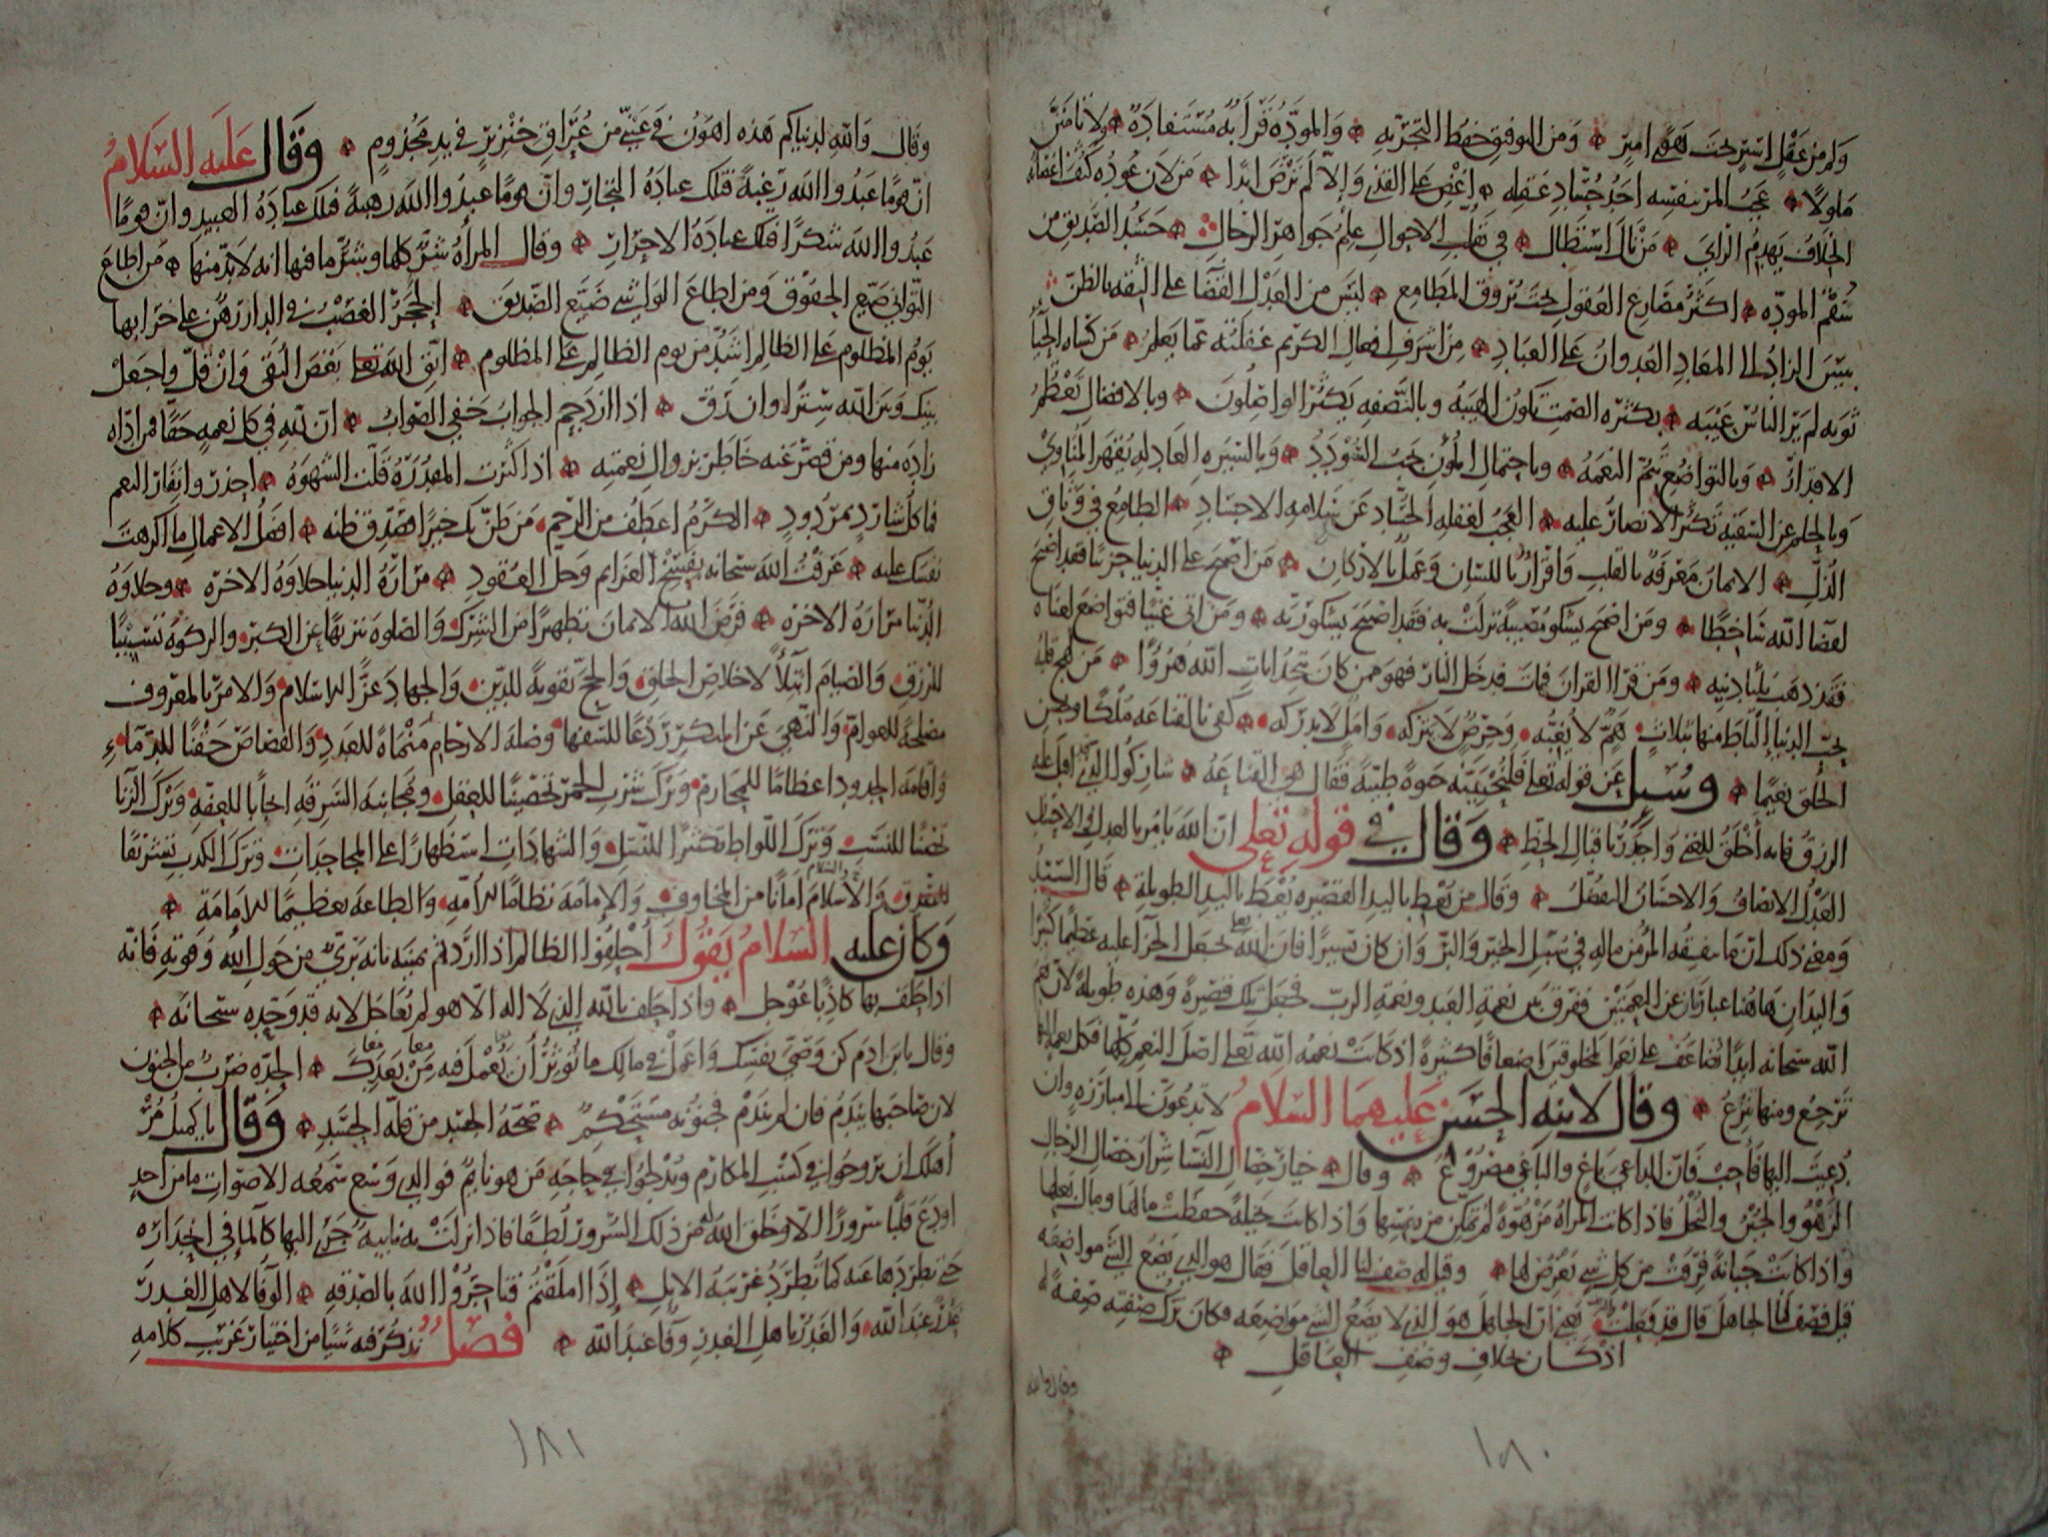 وكم من عقل اسير تحت هوى امير ۞ ومن التوفيق حفظ التجربه ۞ والمودّه قرابه مستفادة ۞ ولا تامننّ
ملولا ۞ عجب المرء بنفسه احد حسّاد عقله ۞ اغض على القذى والّا لم ترض ابدا ۞ من لان عوده كثف اغصانه
الخلاف يهدم الراى ۞ من نال استطال ۞ في تقلب الاحوال علم جواهر الرجال ۞ حسد الصديق من
سقم المودّه ۞ اكثر مصارع العقول تحت بروق المطامع ۞ ليس من العدل القضا على الثقه بالظنّ
بيس الزاد الى المعاد العدوان على العباد ۞ من اشرف افعال الكريم غفلته عمّا يعلم ۞ من كساه الحيا
ثوبه لم ير الناس عيبه ۞ بكثره الصمت تكون الهيبه وبالنصفه يكثر الواصلون ۞ وبالافضال تعظم
الاقدار ۞ وبالتواضع تتمّ النعمه ۞ وباحتمال المؤن يجب السؤدد ۞ وبالسيره العادله يقهر المناوي
وبالحلم عن السفيه تكثر الانصار عليه ۞ العجب لغفله الحسّاد عن سلامه الاجساد ۞ الطامع في وثاق
الذلّ ۞ الايمان معرفه بالقلب واقرار باللسان وعمل بالاركان ۞ من اصبح على الدنيا حزينا فقد اصبح
لقضا الله ساخطا ۞ ومن اصبح يشكو مصيبة نزلت به فقد اصبح يشكو ربّه ۞ ومن اتى غنيّا فتواضع لغناه
فقد ذهب ثلثا دينه ۞ ومن قرا القران فمات فدخل النار فهو ممن كان يتخذ ايات الله هزؤا ۞ من لهج قلبه
بحبّ الدنيا التاط منها بثلاث همّ لا يغبّه وحرص لا يتركه وامل لا يدركه ۞ كفى بالقناعه ملكا وبحسن
الخلق نعيما ۞ وسيل عن قوله تعلى فلنحيينّه حيوة طيّبة فقال هي القناعه ۞ شاركوا الذي اقبل عليه
الرزق فانه اخلق للغنى واجدر باقبال الحظ ۞ وقال في قوله تعلى ان الله يامر بالعدل والاحسان
العدل الانصاف والاحسان التفضّل ۞ وقال من يعط باليد القصيره يعط باليد الطويلة ۞ قال السيّد
ومعنى ذلك ان ما ينفقه المرء من ماله في سبيل الخير والبرّ وان كان يسيرا فان الله تعلى يجعل الجزآء عليه عظيما كثيرا
واليدان هاهنا عبارتان عن النعمتين ففرق بين نعمة العبد ونعمة الربّ فجعل تلك قصيرة وهذه طويلة لان نعم
الله سبحانه ابدا تضاعف على نعم المخلوقين اضعافا كثيرة اذ كانت نعمه الله تعلى اصل النعم كلّها فكل نعمة اليها
ترجع ومنها تنزع ۞ وقال لابنه الحسن عليهما السلام لا تدعونّ الى مبارزه وان
دعيت اليها فاجب فانّ الداعي باغ والباغي مصروع ۞ وقال ۞ خيار خصال النسآ شرار خصال الرجال
الزهو والجبن والبخل فاذا كانت المراة مزهوّة لم تمكّن من نفسها واذا كانت بخيلة حفظت مالها ومال بعلها
واذا كانت جبانة فرقت من كل شي يعرض لها ۞ وقيل له صف لنا العاقل فقال هو الذي يضع الشي مواضعه
قيل فصف لنا الجاهل قال قد فعلت يعني ان الجاهل هو الذي لا يضع الشي مواضعه فكان ترك صفته صفة له
اذ كان بخلاف وصف العاقل ۞
وقال والله
١٨٠
وقال والله لدنياكم هذه اهون في عينيّ من عراق خنزير في يد مجذوم ۞ وقال عليه السلام
انّ قوما عبدوا الله رغبة فتلك عبادة التجار وانّ قوما عبدوا الله رهبة فتلك عبادة العبيد وانّ قوما
عبدوا الله شكرا فتلك عبادة الاحرار ۞ وقال المراة شرّ كلها وشرّ ما فيها انه لا بدّ منها ۞ من اطاع
التواني ضيّع الحقوق ومن اطاع الواشي ضيّع الصديق ۞ الحجر الغصب في الدار رهن على خرابها
يوم المظلوم على الظالم اشدّ من يوم الظالم على المظلوم ۞ اتق الله تعلى بعض التقى وان قلّ واجعل
بينك وبين الله سترا وان رقّ ۞ اذا ازدحم الجواب خفي الصواب ۞ ان لله في كل نعمه حقا فمن ادّاه
زاده منها ومن قصّر عنه خاطر بزوال نعمته ۞ اذا كثرت المقدرة قلّت الشهوة ۞ احذروا نفار النعم
فما كل شارد بمردود ۞ الكرم اعطف من الرحم ۞ من ظنّ بك خيرا فصدّق ظنه ۞ افضل الاعمال ما اكرهت
نفسك عليه ۞ عرفت الله سبحانه بفسخ العزايم وحلّ العقود ۞ مرارة الدنيا حلاوة الاخرة ۞ وحلاوة
الدنيا مرارة الاخرة ۞ فرض الله الايمان تطهيرا من الشرك والصلوة تنزيها عن الكبر والزكوة تسبيبا
للرزق والصيام ابتلآ لاخلاص الخلق والحج تقوية للدين والجهاد عزّا للاسلام والامر بالمعروف
مصلحة للعوام والنهي عن المنكر ردعا للسفها وصلة الارحام منماة للعدد والقصاص حقنا للدمآء
واقامه الحدود اعظاما للمحارم وترك شرب الخمر تحصينا للعقل ومجانبة السرقه ايجابا للعفّة وترك الزنا
تحصنا للنسب وترك اللواط تكثيرا للنسل والشهادات استظهارا على المجاحدات وترك الكذب تشريفا
للصدق والاسلام امانا من المخاوف والامامة نظاما للامّه والطاعة تعظيما للامامة ۞
وكان عليه السلام يقول احلفوا الظالم اذا اردتم يمينه بانه بريّ من حول الله وقوته فانّه
اذا حلف بها كاذبا عوجل ۞ واذا حلف بالله الذي لا اله الّا هو لم يعاجل لانه قد وحّده سبحانه ۞
وقال يابن ادم كن وصيّ نفسك واعمل في مالك ما تؤثر ان يعمل فيه من بعدك ۞ الحدّه ضرب من الجنون
لان صاحبها يندم فان لم يندم فجنونه مستحكم ۞ صحّة الجسد من قلّة الحسد ۞ وقال يا كميل مر
اهلك ان يروحوا في كسب المكارم ويدلجوا في حاجة من هو نايم فوالذي وسع سمعه الاصوات ما من احد
اودع قلبا سرورا الّا وخلق الله له من ذلك السرور لطفا فاذا نزلت به نايبة جرى اليها كالمآ في انحداره
حتى يطردها عنه كما تطرد غريبة الابل ۞ اذا املقتم فتاجروا الله بالصدقه ۞ الوفا لاهل الغدر
غدر عند الله والغدر باهل الغدر وفا عند الله ۞ فصل نذكر فيه شيا من اختيار غريب كلامه
١٨١